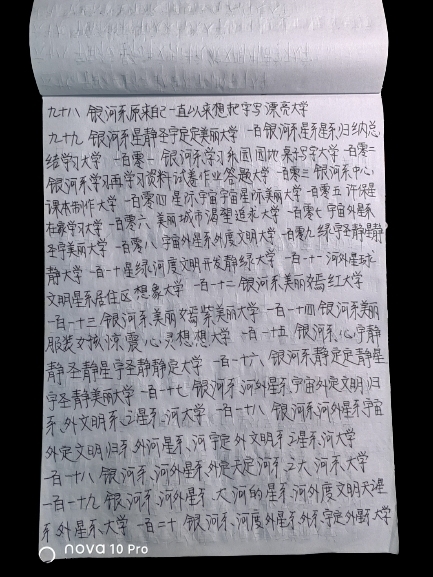 九十八 银河系原来自己一直以来想把字写漂亮大学
九十九 银河系星静圣宇定定美丽大学 一百 银河系星系星系归纳总
结学习大学 一百零一 银河系学习乐园园地桌子写字大学 一百零二
银河系学习再学习资料试卷作业答题大学 一百零三 银河系中心
课本制作大学 一百零四 星际宇宙宇宙星际美丽大学 一百零五 许保星
在家学习大学 一百零六 美丽城市渴望追求大学 一百零七 宇宙外星系
圣宇美丽大学 一百零八 宇宙外星系外度文明大学 一百零九 绿宇圣静星静
静大学 一百一十 星绿河度文明开发静绿大学 一百一十一 河外星球
文明星系居住区想象大学 一百一十二 银河系美丽嫣红大学
一百一十三 银河系美丽嫣紫美丽大学 一百一十四 银河系美丽
服装女孩惊震心灵想想大学 一百一十五 银河系、心宇静
静圣静星宇圣静静定大学 一百一十六、银河系静定定静星
宇圣静美丽大学 一百一十七、银河系、河外星系、宇宙外定文明归
系、外文明系、卫星系、河大学 一百一十八 银河系、河外星系宇宙
外定文明归系外河星系、河宇定外文明系卫星系、河大学
一百一十八 银河系、河外星系、外定天定河系、大河系大学
一百一十九 银河系、河外星系、大河的星系、河外度文明天涯星
系外星系、大学 一百二十 银河系、河度外星系、外系、宇定外星系大学
nova 10 Pro